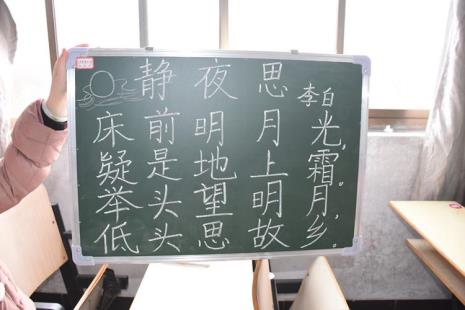 静夜思 李白
床前明月光,
疑是地上霜。
举头望明月,
低头思故乡。